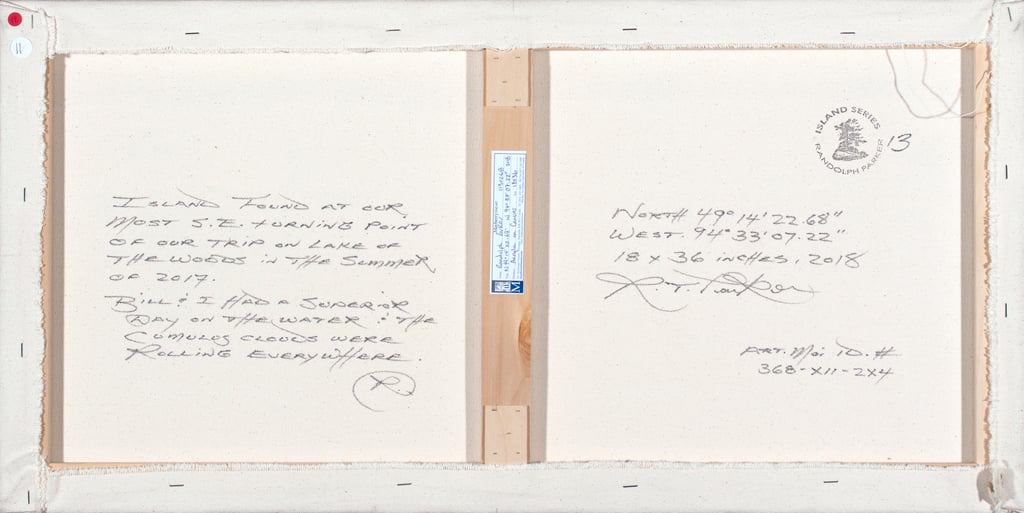 11
Island found at our
most S.E. turning point
of our trip on Lake of
the Woods in the Summer
of 2017.
Bill & I had a superior
day on the water & the
cumulus clouds were
rolling everywhere.
R.
M
ISLAND SERIES
RANDOLPH PARKER
13
North 49° 14' 22.68"
West. 94° 33' 07.22"
18 x 36 inches, 2018
R.T. Parker
Art. Moi ID. #
368-XII-2X4